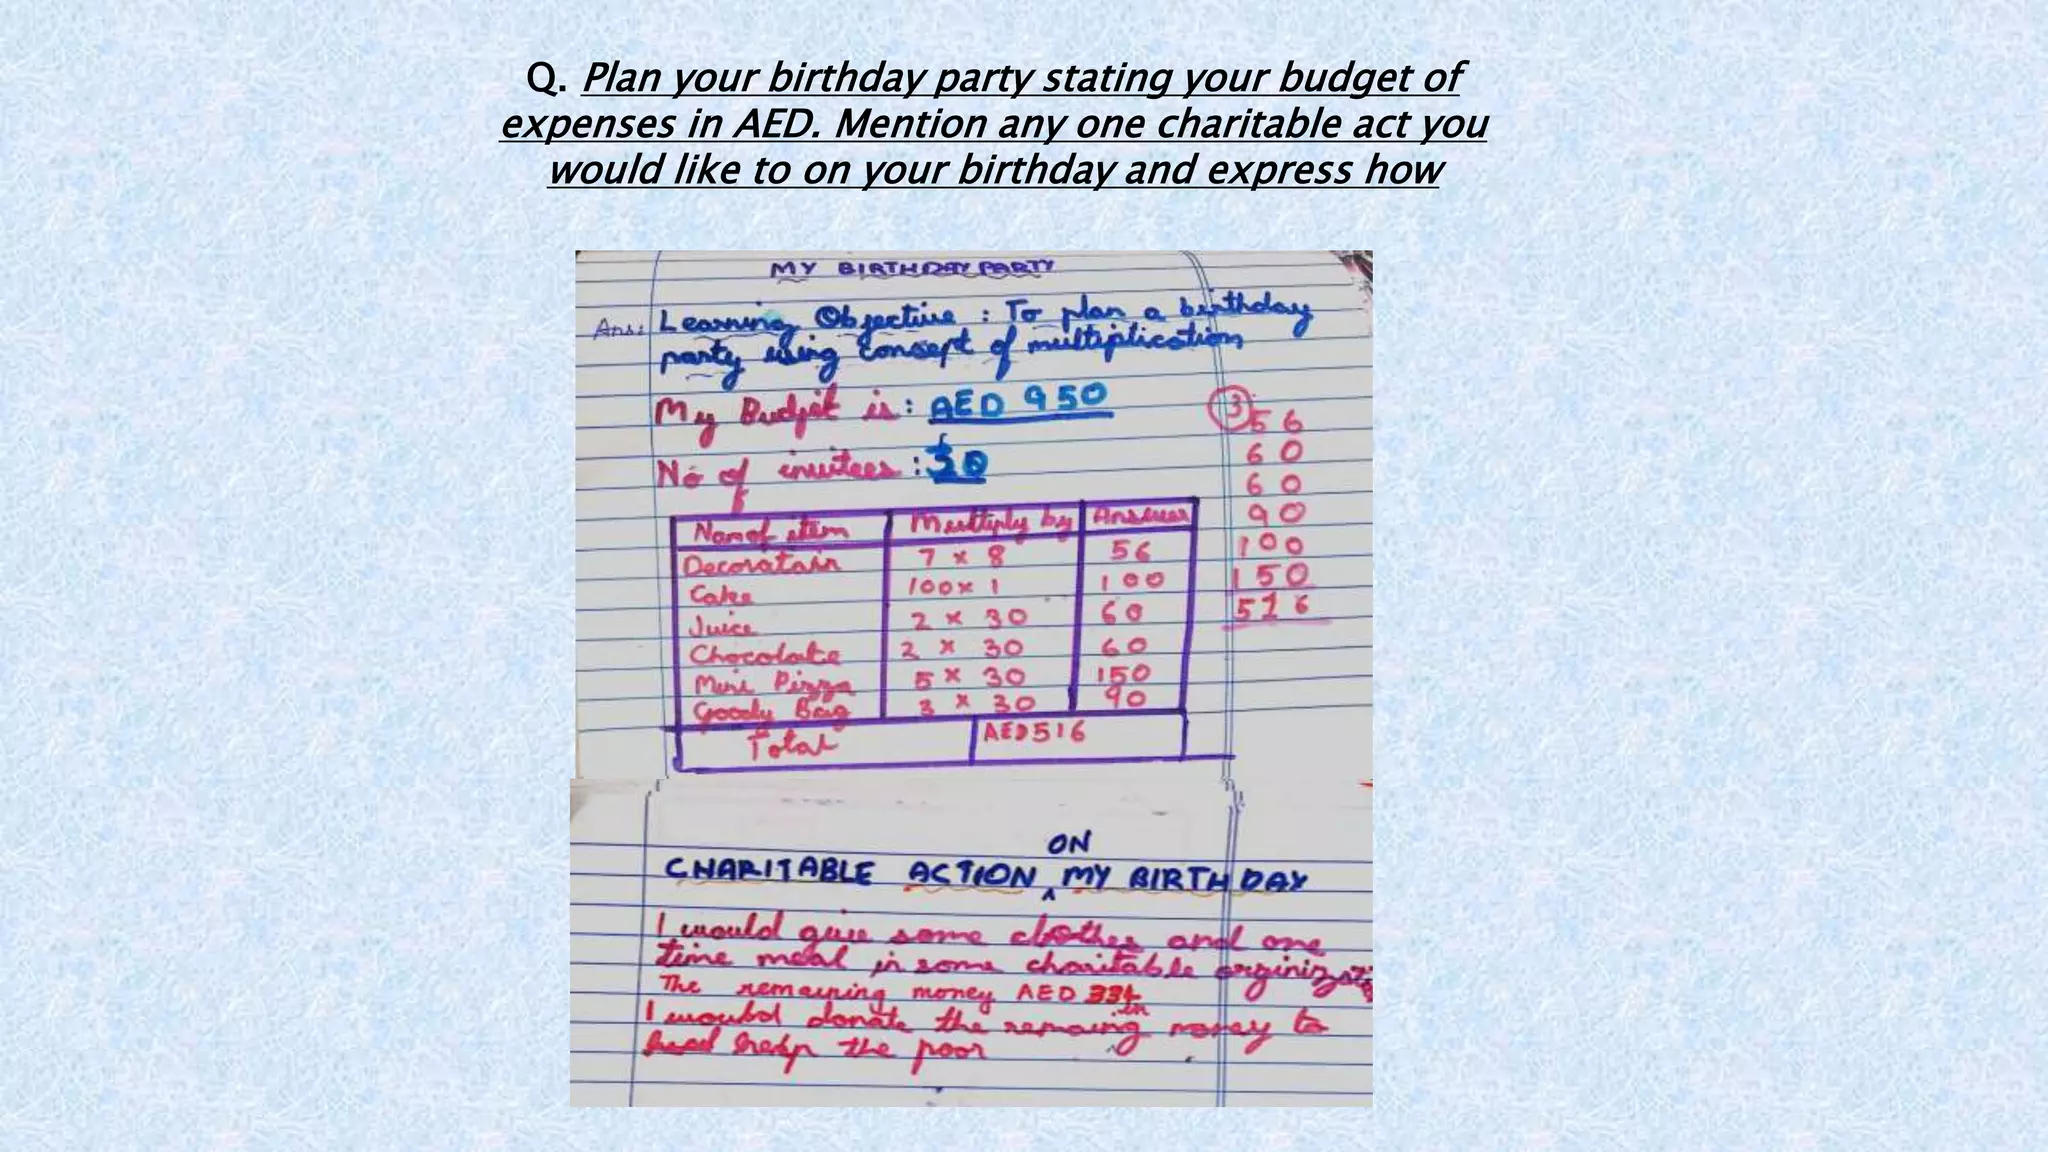 Q. Plan your birthday party stating your budget of
expenses in AED. Mention any one charitable act you
would like to on your birthday and express how
MY BIRTHDAY PARTY
Ans: Learning Objective : To plan a birthday
party using concept of multiplication
My Budget is : AED 950
No of invitees : 30
Name of item Multiply by Answer
Decoratain 7 × 8 56
Cake 100 × 1 100
Juice 2 × 30 60
Chocolate 2 × 30 60
Mini Pizza 5 × 30 150
Goody Bag 3 × 30 90
Total AED 516
3
56
60
60
90
100
150
516
ON
CHARITABLE ACTION ^ MY BIRTHDAY
I would give some clothes and one
time meal in some charitable
The remaining money AED
I would donate the remaing money to
help the poor